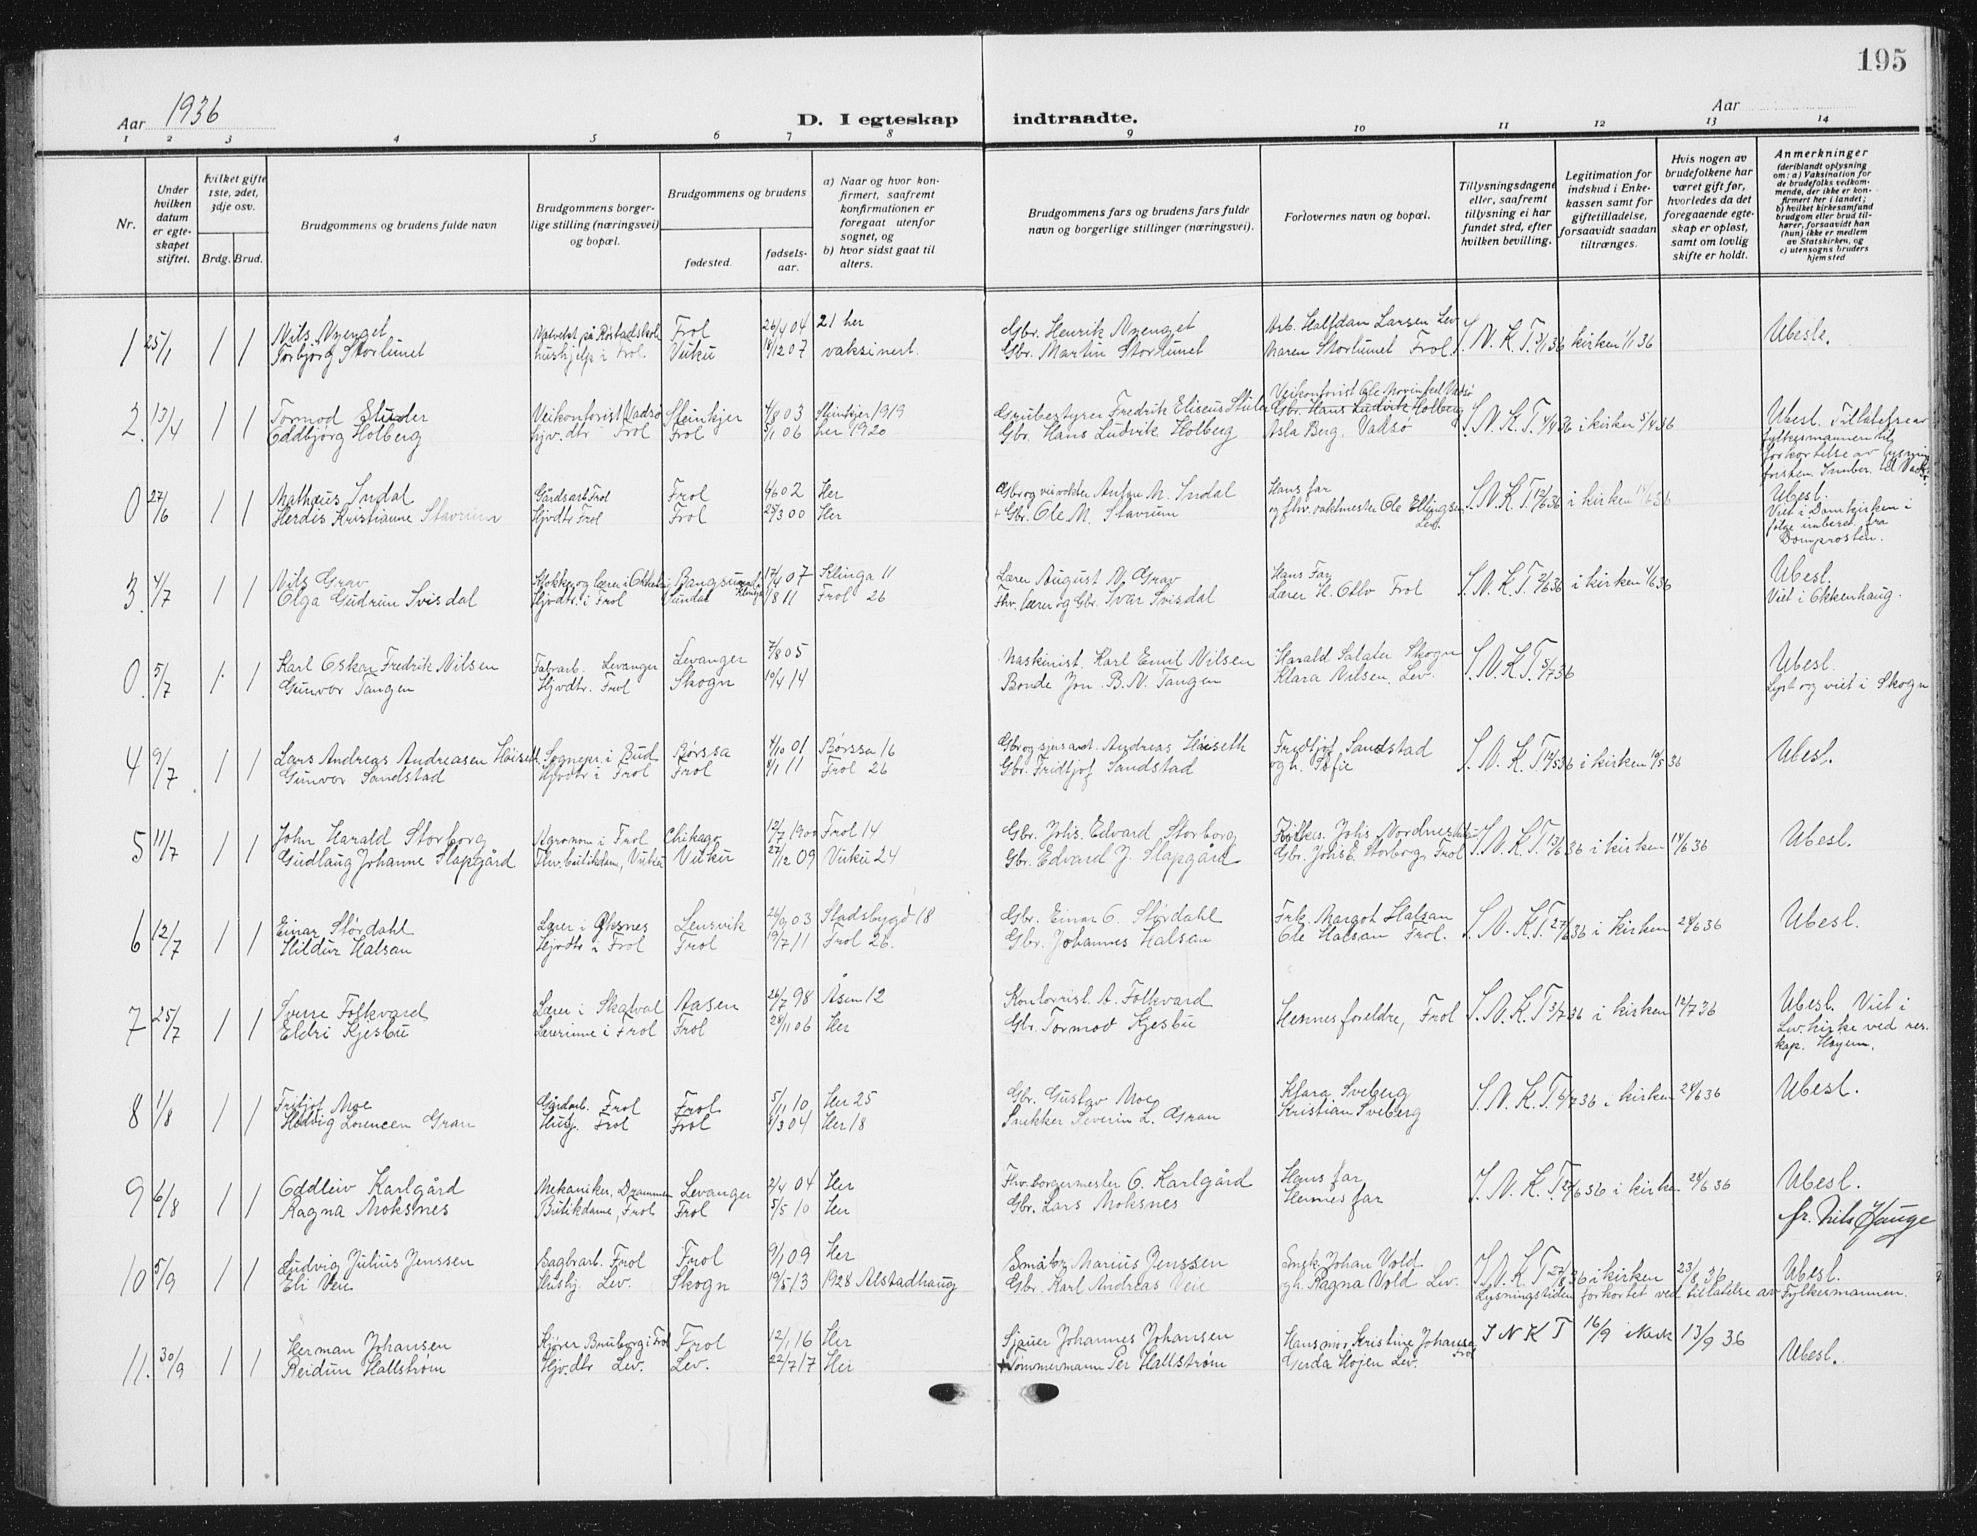 195
Aar 1936
D. I egteskap indtraadte.
Aar
1 2 3 4 5 6 7 8 9 10 11 12 13 14
Nr.
Under hvilken datum er egteskapet stiftet.
hvilket gifte 1ste, 2det, 3dje osv.
Brdg. Brud.
Brudgommens og brudens fulde navn
Brudgommens borgerlige stilling (næringsvei) og bopæl.
Brudgommens og brudens
fødested.
fødselsaar.
a) Naar og hvor konfirmert, saafremt konfirmationen er foregaat utenfor sognet, og
b) hvor sidst gaat til alters.
Brudgommens fars og brudens fars fulde navn og borgerlige stillinger (næringsvei).
Forlovernes navn og bopæl.
Tillysningsdagene eller, saafremt tillysning ei har fundet sted, efter hvilken bevilling.
Legitimation for indskud i Enkekassen samt for giftetilladelse, forsaavidt saadan tiltrænges.
Hvis nogen av brudefolkene har været gift før, hvorledes da det foregaaende egteskap er opløst, samt om lovlig skifte er holdt.
Anmerkninger (deriblandt oplysning om: a) Vaksination for de brudefolks vedkommende, der ikke er konfirmert her i landet; b) hvilket kirkesamfund brudgom eller brud tilhører, forsaavidt han (hun) ikke er medlem av Statskirken, og c) utensogns bruders hjemsted
1 25/1 1 1 Nils Nyenget Frol 26/4 04 21 her Gbr. Henrik Nyenget Arb. Halfdan Larsen Lev. S.N.K.T. 3/1 36 kirken 1/1 36 Ubesl.
Torbjørg Storlunet hushjelp i Frol Vuku 18/12 07 vaksinert. Gbr. Martin Storlunet Maren Storlunet Frol
2. 13/4 1 1 Tormod Stuler Veikontorist Vadsø Steinkjer 4/8 03 Steinkjer 1919 Grubestyrer Fredrik Eliseus Stuler Veikontorist Ole Vadsø
Gbr. Hans Ludvik Holberg S.N.K.T. 4/4 36 i kirken 5/4 36 Ubesl. Tillatelse av
Oddbjørg Holberg hjv.dtr Frol Frol 5/1 06 her 1920 Gbr. Hans Ludvik Holberg Asla Berg, Vadsø fylkesmannen til
forkortelse av lysnings
fristen.
0 27/6 1 1 Mathæus Indal Gårdsarb. Frol Frol 4/6 02 Her Gbr og veivokter M. Indal Hans far S.N.K.T. 12/6 36 i kirken 14/6 36 Ubesl.
Herdis Kristianne Stavrum Hjvdtr Frol Frol 25/3 00 Her + Gbr. Ole M. Stavrum og fhv. vaktmester Ole Ellingsen Lev. Viet i Domkirken i
følge innberet. fra
Domprosten.
3. 4/7 1 1 Nils Grav Klokker og lærer i Bangsund Klinga 17/4 07 Klinga 11 Lærer August N. Grav Hans Far S.N.K.T. 2/6 36 i kirken 4/6 36 Ubesl.
Olga Gudrun Svisdal Hjvdtr. i Frol 1/8 11 Frol 26 Fhv. lærer og Gbr. Ivar Svisdal Lærer H. Frol Viet i Okkenhaug.
0. 5/7 1 1 Karl Oskar Fredrik Nilsen Fabrarb. Levanger Levanger 7/8 05 Maskinist. Karl Emil Nilsen Harald Salater Skogn S.N.K.T. 5/7 36 Ubesl.
Gunvor Tangen Hjvdtr. Frol Skogn 10/4 14 Bonde Jon B.N. Tangen Klara Nilsen, Lev. Lyst og viet i Skogn
4 9/7 1 1 Lars Andreas Andreasen Høiseth Sognepr. i Bud Børssa 4/10 01 Børssa 16 Gbr og Andreas Høiseth Fridtjof Sandstad S.N.K.T. 14/5 36 i kirken 10/5 36 Ubesl.
Gunvor Sandstad Hjvdtr i Frol Frol 8/1 11 Frol 26 Gbr. Fridtjof Sandstad og h. Sofie
5 11/7 1 1 John Harald Storborg Agronom i Frol Chikago 12/7 1900 Frol 14 Gbr. Johs. Edvard Storborg Johs Nordnes S.N.K.T. 13/6 36 i kirken 14/6 36 Ubesl.
Gudlaug Johanne Slapgård Fhv. butikdame, Vuku Vuku 27/12 09 Vuku 24 Gbr. Edvard J. Slapgård Gbr. Johs E. Storborg, Frol
6 12/7 1 1 Einar Størdahl Lærer i Øksnes Lensvik 26/9 03 Stadsbygd 18 Gbr. Einar O. Størdahl Frk. Margot Halsan S.N.K.T. 27/6 36 i kirken 28/6 36 Ubesl.
Hildur Halsan Hjvdtr i Frol Frol 19/7 11 Frol 26. Gbr. Johannes Halsan Ole Halsan Frol.
7 25/7 1 1 Sverre Folkvard Lærer i Skatval Aasen 26/7 98 Åsen 12 Kontorist. A. Folkvard Hennes foreldre, Frol S.N.K.T. 3/7 36 i kirken 12/7 36 Ubesl. Viet i
Eldri Kjesbu Lærerinne i Frol Frol 28/11 06 Her Gbr. Tormod Kjesbu Lev. kirke ved res.
kap. Høyem.
8 1/8 1 1 Fritjof Moe Gårdarb. Frol Frol 5/11 10 Her 25 Gbr. Gustav Moe Klara Sveberg S.N.K.T. 6/7 36 i kirken 28/6 36 Ubesl.
Hedvig Lorencen Gran Hush. Frol Frol 8/3 04 Her 18 Snekker Severin L. Gran Kristian Sveberg
9 6/8 1 1 Oddleiv Karlgård Mekaniker, Drammen Levanger 2/4 04 Her Fhv. borgermester O. Karlgård Hans far S.N.K.T. 27/6 36 i kirken 28/6 36 Ubesl.
Ragna Moksnes Butikdame, Frol Frol 5/5 10 Her Gbr. Lars Moksnes Hennes far
fr. Nils Hauge
10 5/9 1 1 Ludvig Julius Jenssen Sagbrarb. Frol Frol 9/1 09 Her Småbr. Marius Jenssen Johan Vold S.N.K.T. 27/8 36 i kirken 23/8 36 Ubesl.
Eli Veie Hushj. Lev. Skogn 19/5 13 1928 Alstadhaug Gbr. Karl Andreas Veie gh. Ragna Vold Lev. Lysningstiden forkortet ved tillatelse av Fylkesmannen.
11. 30/9 1 1 Herman Johansen Kjører Bruborg i Frol Frol 12/1 16 Her Sjauer Johannes Johansen Hans mor Kristine Johansen Frol S N K T 16/9 i Nesk 13/9 36 Ubesl.
Reidun Hallstrøm Hjv.dtr Lev. Lev. 22/7 17 Her Tømmermann Per Hallstrøm Gerda Hojen Lev.